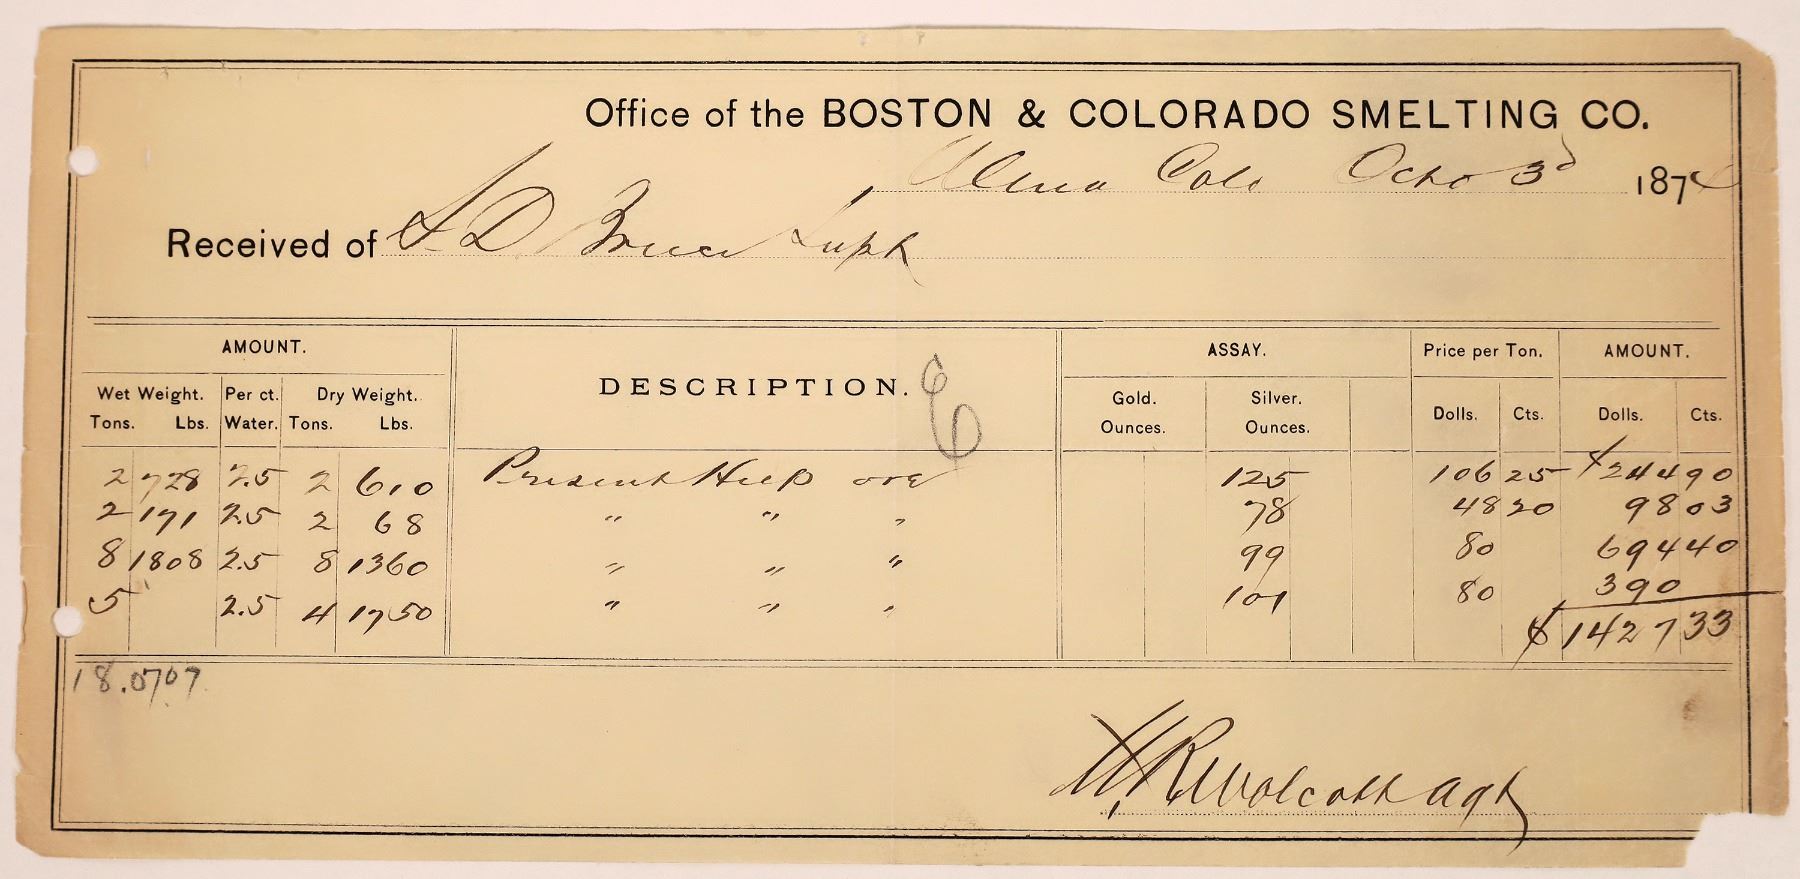 Office of the BOSTON & COLORADO SMELTING CO.
Alma Colo Octo 3d 1874
Received of J. D. Bruce Supt
AMOUNT. DESCRIPTION. ASSAY. Price per Ton. AMOUNT.
Wet Weight. Per ct. Dry Weight. Gold. Silver. Dolls. Cts. Dolls. Cts.
Tons. Lbs. Water. Tons. Lbs. Ounces. Ounces.
2 728 2.5 2 610 Present Help ore 125 106 25 $244 90
2 171 2.5 2 68 " " " 78 48 20 98 03
8 1808 2.5 8 1360 " " " 99 80 694 40
5 2.5 4 1750 " " " 101 80 390
$1427 33
18.0707
H. R. Wolcott Agt